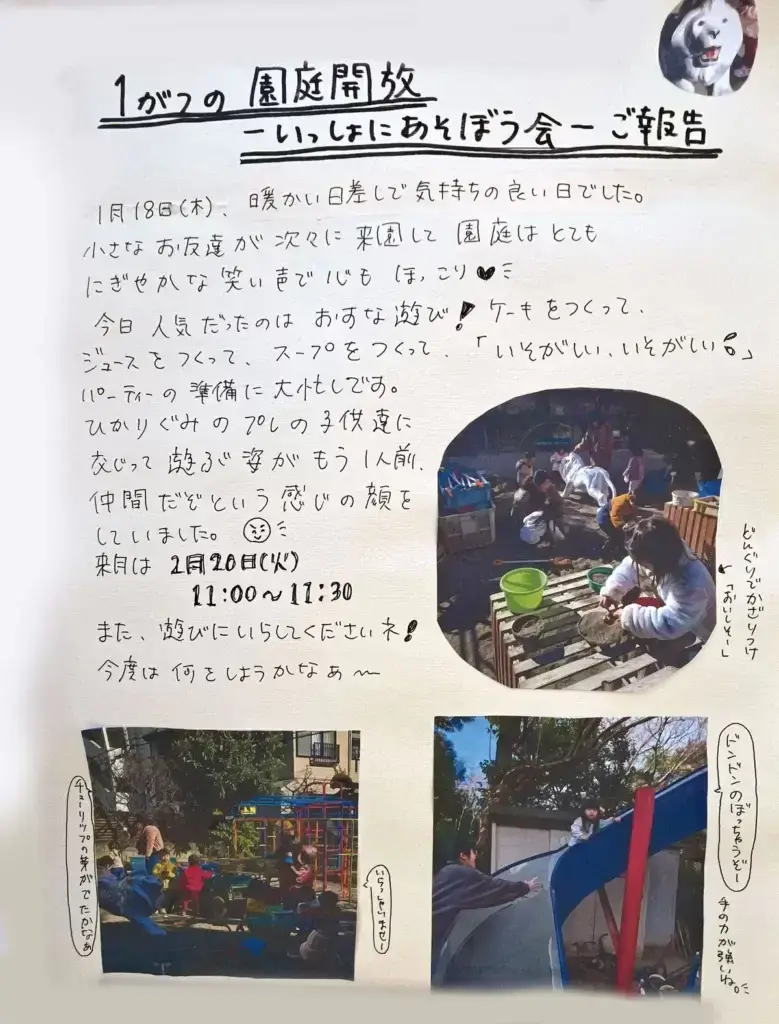 1がつの 園庭開放
ーいっしょにあそぼう会ー ご報告
1月18日(木)、暖かい日差しで気持ちの良い日でした。
小さなお友達が次々に来園して 園庭はとても
にぎやかな笑い声で心も ほっこり♥
今日人気だったのは おすな遊び! ケーキをつくって、
ジュースをつくって、スープをつくって、「いそがしい、いそがしい」
パーティーの準備に大忙しです。
ひかりぐみのプレの子供達に
交じって遊ぶ姿がもう1人前、
仲間だぞという感じの顔を
していました。
来月は 2月20日(火)
11:00〜11:30
また、遊びにいらしてくださいネ!
今度は何をしようかなぁ〜
どんぐりでかざりつけ
「おいしそー」
チューリップの芽がでたかなぁ
いらっしゃいませー
ドンドンのぼっちゃうぞー
手の力が強いね。